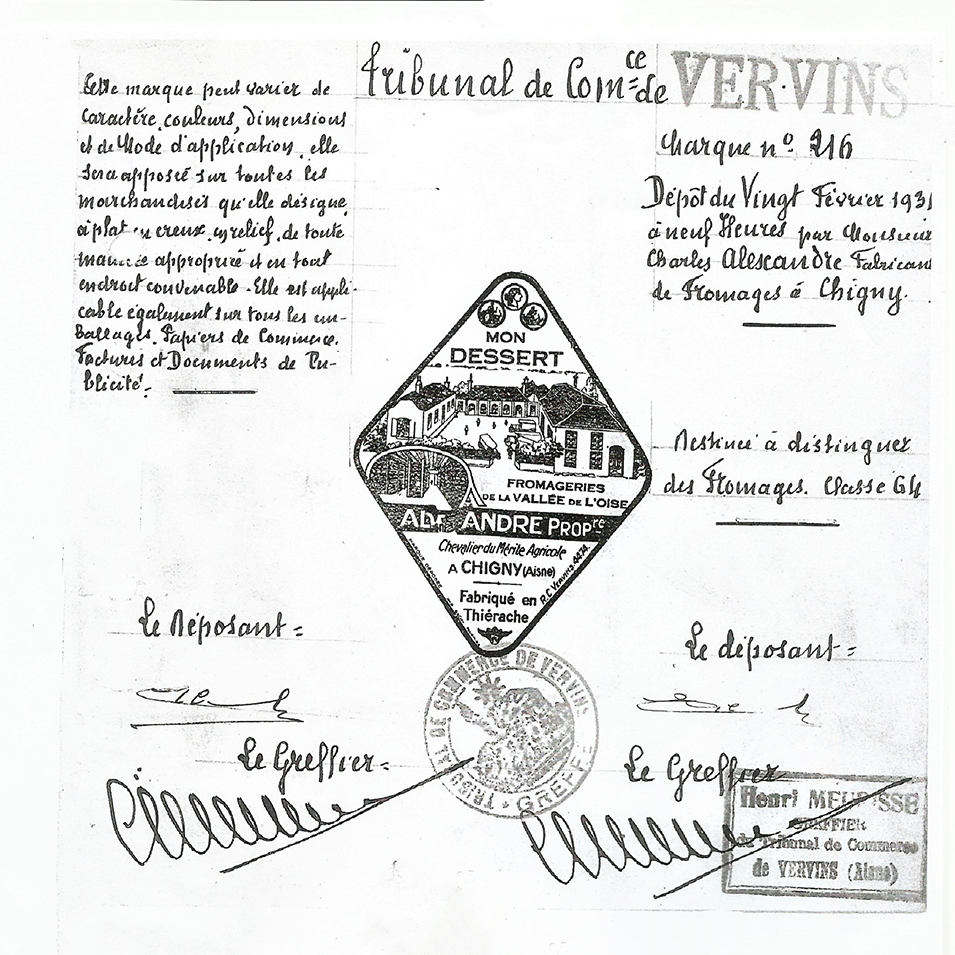 Tribunal de Com=ce de VERVINS
Cette marque peut varier de
caractère, couleurs, dimensions
et de Mode d'application, elle
sera apposée sur toutes les
marchandises qu'elle désigne,
à plat en creux, en relief, de toute
manière appropriée et en tout
endroit convenable. Elle est appli-
cable également sur tous les em-
ballages, Papiers de Commerce,
Factures et Documents de Pu-
blicité.
Marque nº 216
Dépôt du Vingt Février 1931
à neuf Heures par Monsieur
Charles Alexandre Fabricant
de Fromages à Chigny.
Destinée à distinguer
des Fromages. Classe 64
MON
DESSERT
FROMAGERIES
DE LA VALLÉE DE L'OISE
ANDRE PROPre
Chevalier du Mérite Agricole
A CHIGNY (Aisne)
Fabriqué en
Thiérache
R.C. VERVINS 4474
Le Déposant =
Le déposant =
TRIBUNAL DE COMMERCE DE VERVINS
GREFFE
Le Greffier =
Le Greffier
Henri MEURISSE
GREFFIER
du Tribunal de Commerce
de VERVINS (Aisne)